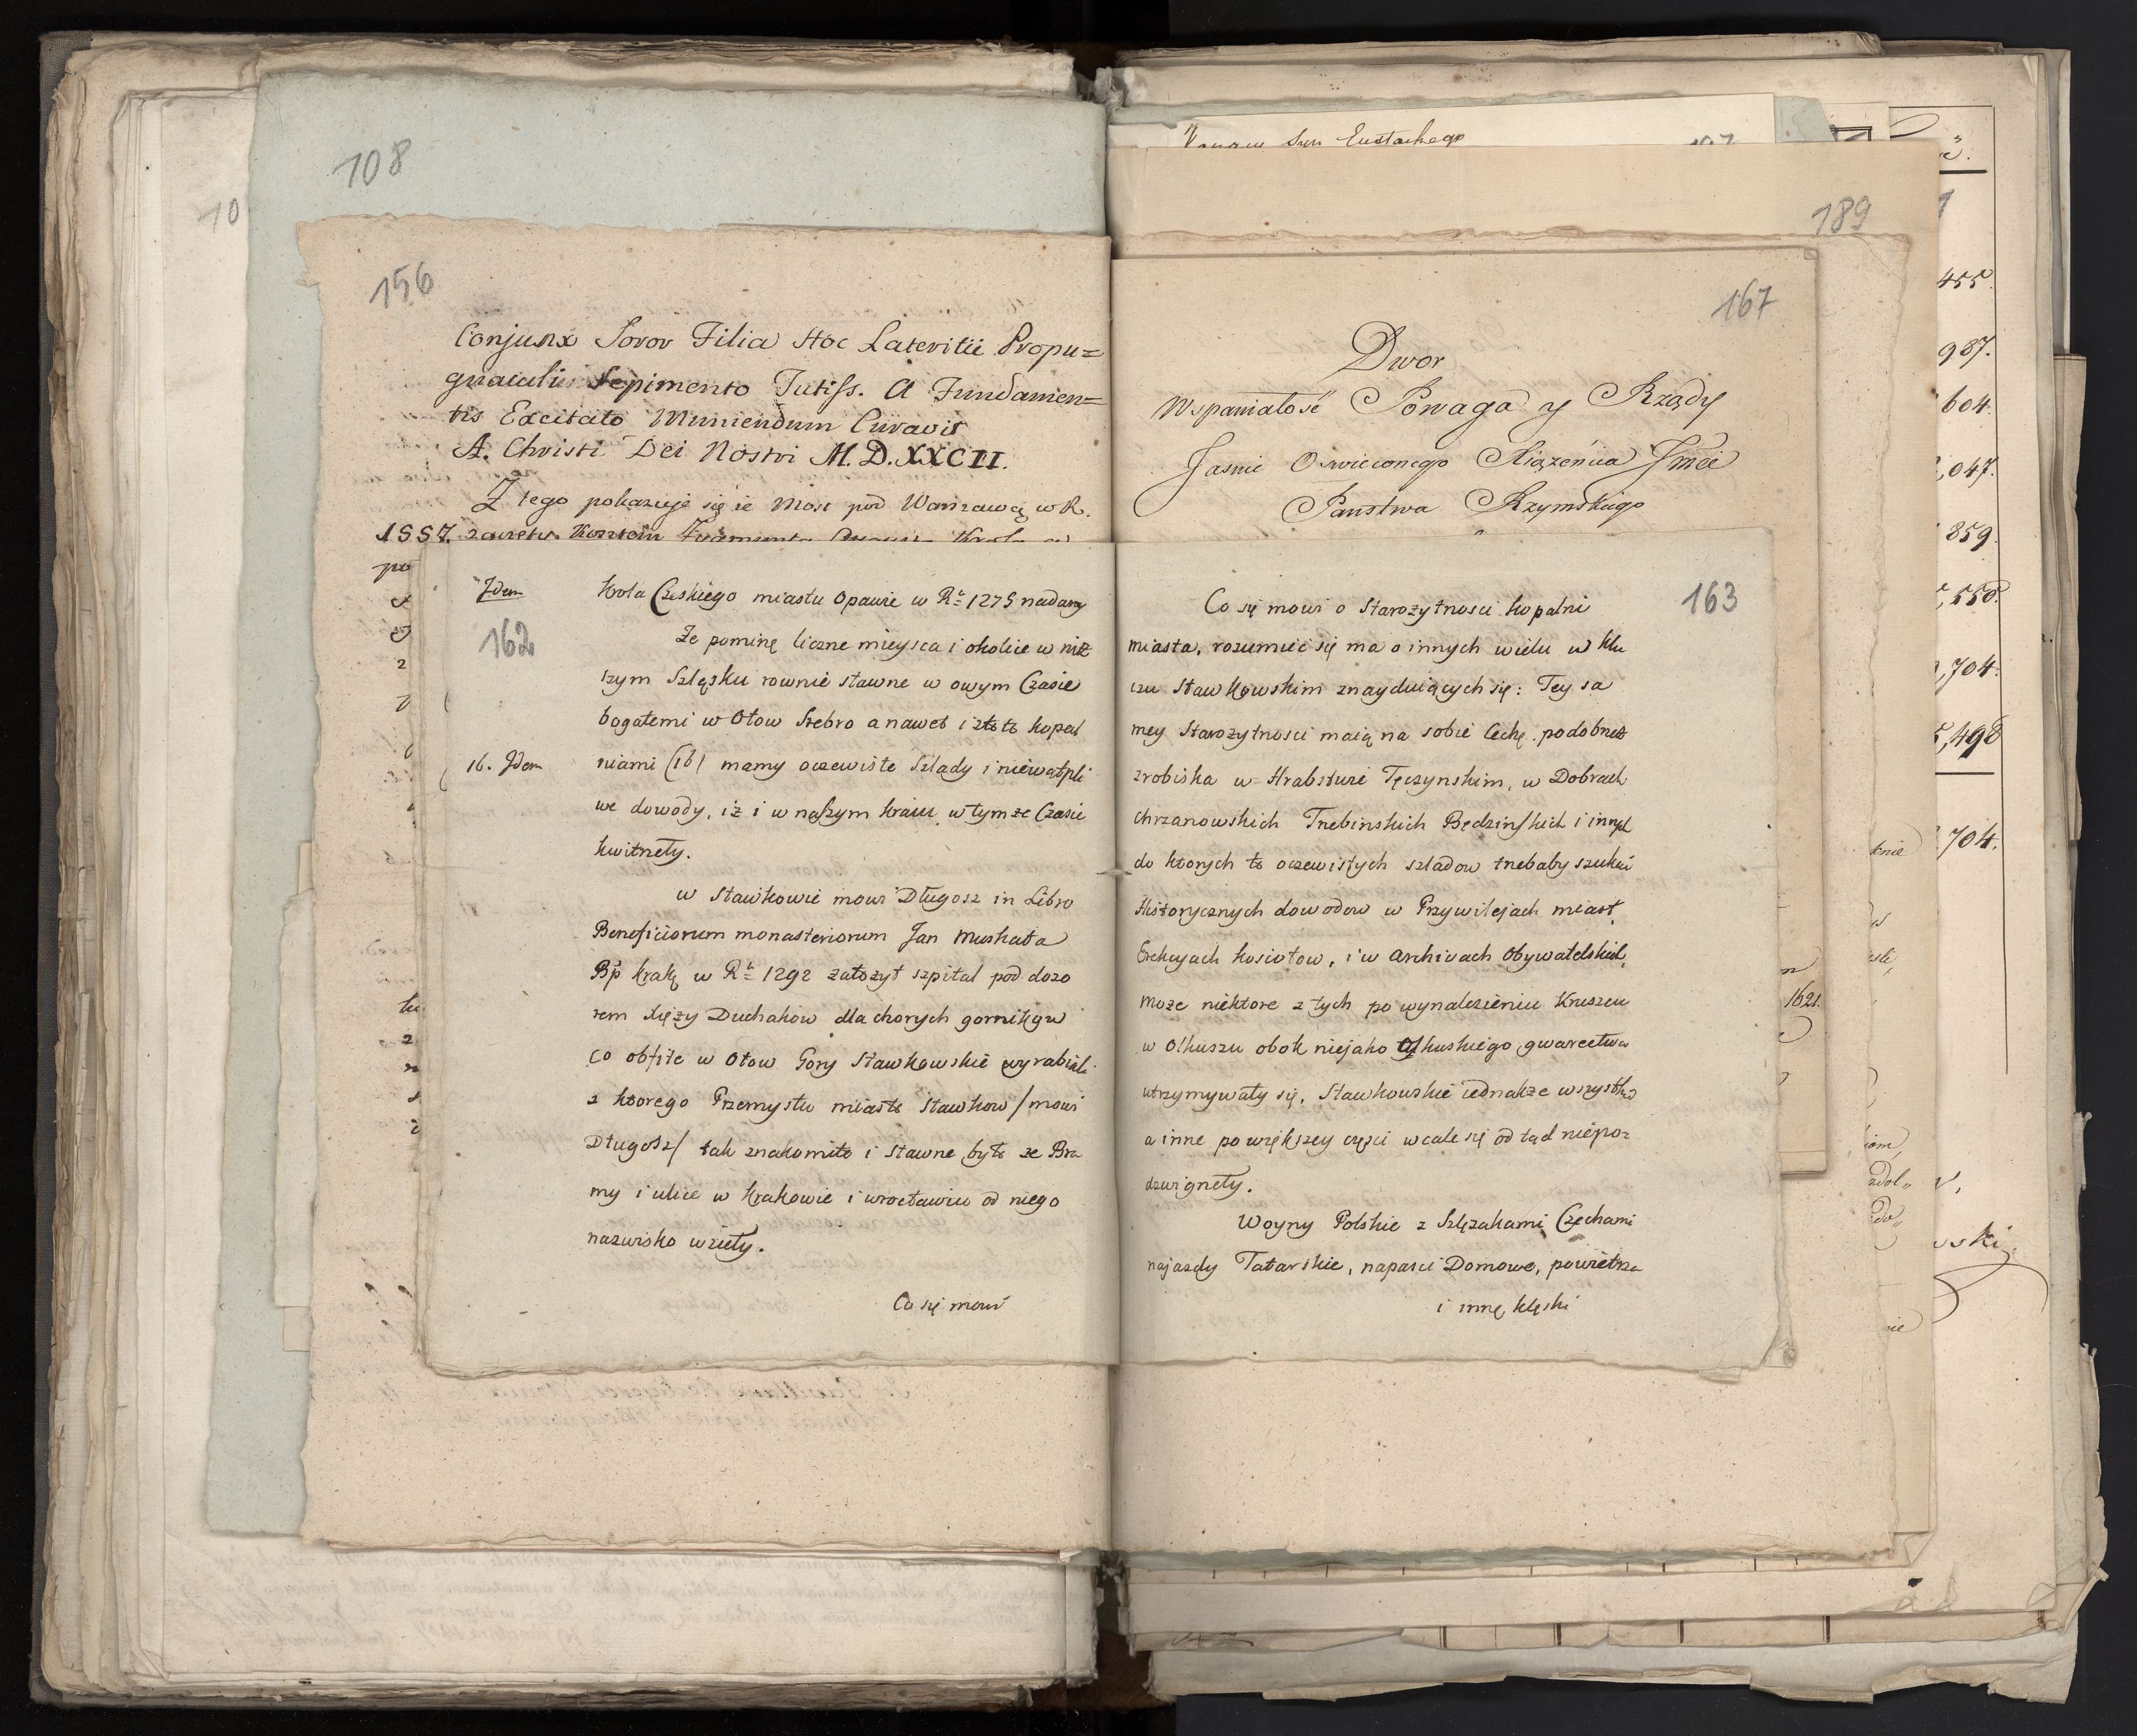 108
10
156
Conjunx Soror Filia Hoc Lateritii Propu=
gnaculi Sepimento Tutiss. A Fundamen=
tis Excitato Muniendum Curavit
A. Christi Dei Nostri M.D.XXCII.
Z tego pokazuje się że Most pod Warszawą w R.
1557. zaczęty Kosztem Zygmunta Augusta Krola
po
Idem
162
16. Idem
Krola Czeskiego miastu Opawie w Rᵘ 1275 nadany
Ze pominę liczne mieysca i okolice w niż
szym Szląsku rownie sławne w owym Czasie
bogatemi w Ołow Srebro a nawet i złoto kopal
niami (16) mamy oczewiste szlady i niewątpli
we dowody, iż i w naszym kraiu w tymze Czasie
kwitnęły.
w Sławkowie mowi Długosz in Libro
Beneficiorum monasteriorum Jan Muskata
Bp krakّ w Rᵘ 1292 założył szpital pod dozo
rem Xięży Duchakow dla chorych gornikow
co obfite w Ołow Gory Sławkowskie wyrabiali
z ktorego Przemysłu miasto Sławkow /mowi
Długosz/ tak znakomite i sławne było ze Bra
my i ulice w Krakowie i wrocławiu od niego
nazwisko wzieły.
Co się mowi
Eustachego
189
167
Dwor
Wspaniałość Powaga y Rządy
Jasnie Oswieconego Xiążęcia Jmci
Panstwa Rzymskiego
163
Co się mowi o Starożytnosci kopalni
miasta, rozumieć się ma o innych wielu w klu
czu Sławkowskim znayduiących się: Tey sa
mey Starożytnosci maią na sobie Cechę podobneż
zrobiska w Hrabstwie Tęczynskim, w Dobrach
chrzanowskich Trzebinskich Będzinskich i innych
do ktorych to oczewistych szladow trzebaby szukać
Historycznych dowodow w Przywilejach miast,
Erekcyach kosciołow, i w Archivach Obywatelskich,
może niektore z tych po wynalezieniu Kruszcu
w Olkuszu obok niejako Olkuskiego gwarectwa
utrzymywały się, Sławkowskie iednakże wszystkie
a inne po większey części wcale się od tąd niepo=
dzwignęły.
Woyny Polskie z Szlęzakami Czechami
najazdy Tatarskie, napasci Domowe, powietrza
i inne klęski
455.
987.
604.
,047.
859.
,558.
,704.
,498
704.
1621.